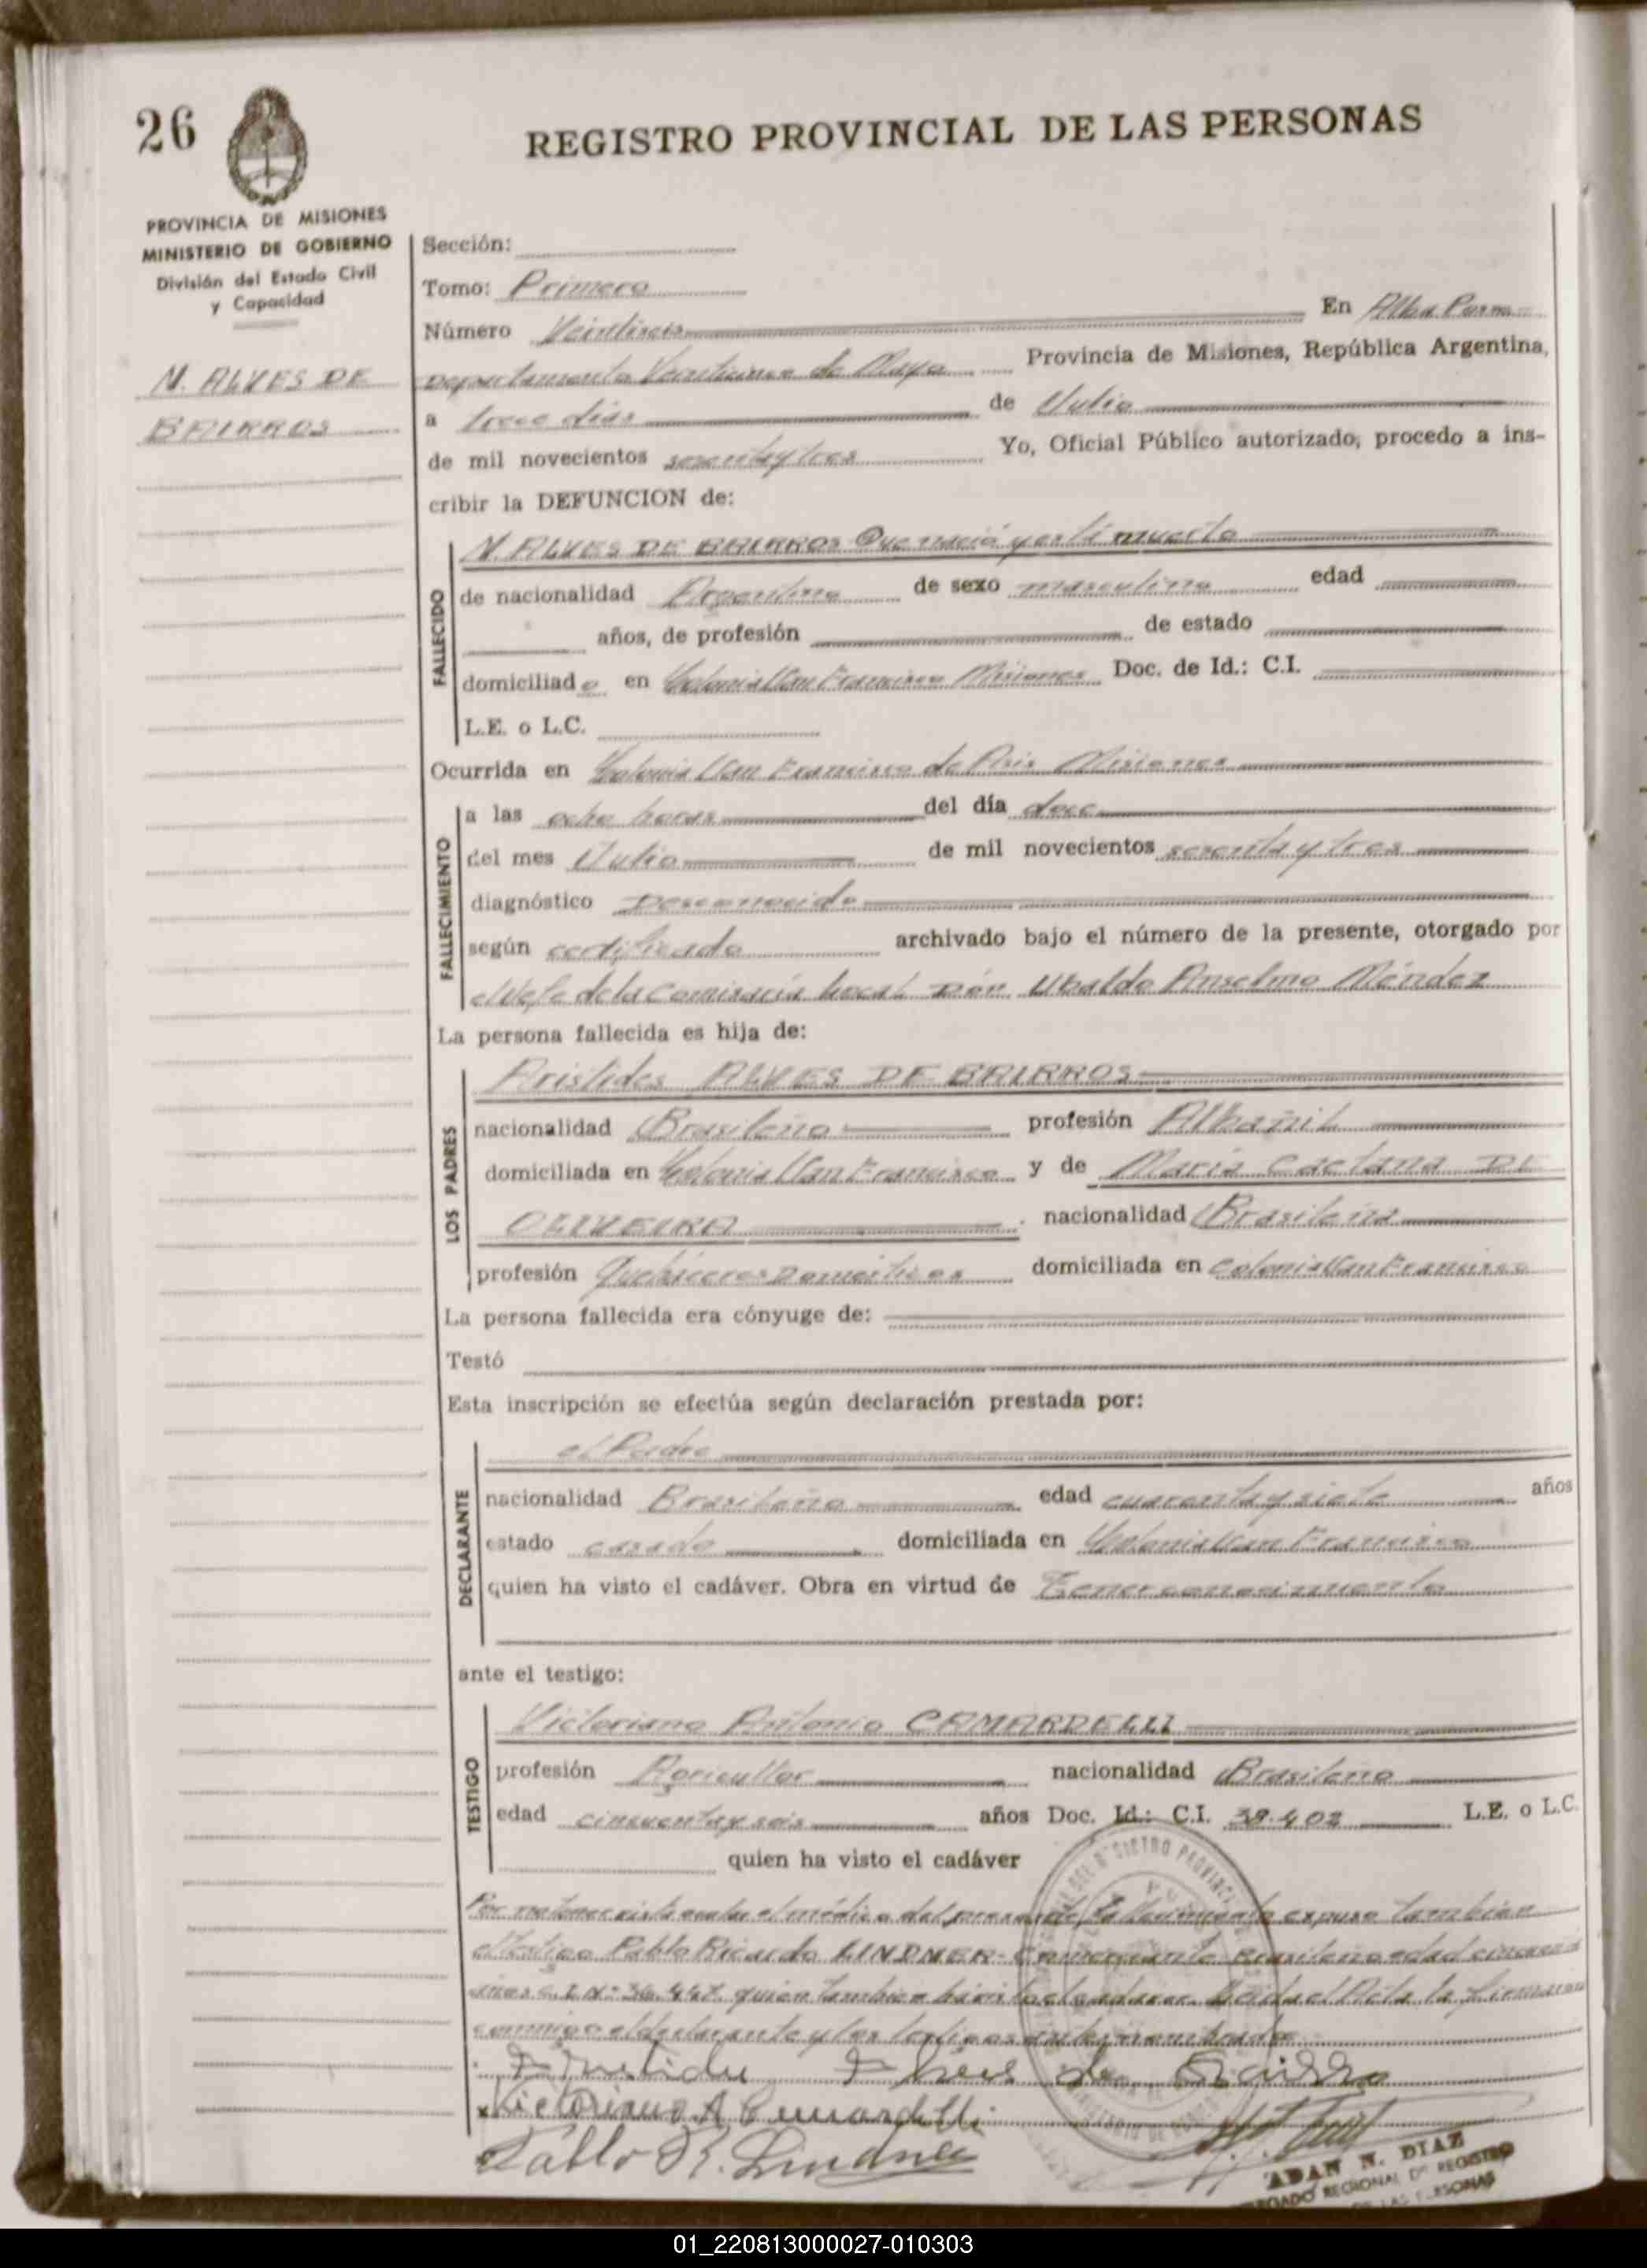 26
REGISTRO PROVINCIAL DE LAS PERSONAS
PROVINCIA DE MISIONES
MINISTERIO DE GOBIERNO
División del Estado Civil
y Capacidad
N. ALVES DE
BAIRROS
Sección:
Tomo: Primero
Número Veintiseis En Alba Posse
Departamento Veinticinco de Mayo Provincia de Misiones, República Argentina,
a trece días de Julio
de mil novecientos sesenta y tres Yo, Oficial Público autorizado, procedo a ins-
cribir la DEFUNCION de:
FALLECIDO
N. ALVES DE BAIRROS Que nació y está muerto
de nacionalidad Argentino de sexo masculino edad
años, de profesión de estado
domiciliado en Colonia San Francisco Misiones Doc. de Id.: C.I.
L.E. o L.C.
Ocurrida en Colonia San Francisco de Asis Misiones
FALLECIMIENTO
a las ocho horas del día doce
del mes Julio de mil novecientos sesenta y tres
diagnóstico Desconocido
según certificado archivado bajo el número de la presente, otorgado por
el Jefe de la Comisaría local Don Ubaldo Anselmo Méndez
La persona fallecida es hija de:
LOS PADRES
Aristides ALVES DE BAIRROS
nacionalidad Brasileño profesión Albañil
domiciliada en Colonia San Francisco y de María Caetana DE
OLIVEIRA nacionalidad Brasileña
profesión Quehaceres Domésticos domiciliada en Colonia San Francisco
La persona fallecida era cónyuge de:
Testó
Esta inscripción se efectúa según declaración prestada por:
DECLARANTE
el Padre
nacionalidad Brasileño edad cuarenta y siete años
estado casado domiciliada en Colonia San Francisco
quien ha visto el cadáver. Obra en virtud de Tener conocimiento
ante el testigo:
TESTIGO
Victoriano Antonio CAMARDELLI
profesión Agricultor nacionalidad Brasileño
edad cincuenta y seis años Doc. Id.: C.I. 38.402 L.E. o L.C.
quien ha visto el cadáver
Por no tener visto el médico del presente fallecimiento expuso también
el testigo Pablo Ricardo LINDNER - Comerciante Brasileño edad
años C.I. Nº 36.447 quien también ha visto el cadaver. Leida el Acta la firman
conmigo el declarante y los testigos
Aristides Alves de Bairro
Victoriano A Camardelli
Pablo R. Lindner
ADAN N. DIAZ
REGIONAL DE REGISTRO
DE LAS PERSONAS
01_220813000027-010303